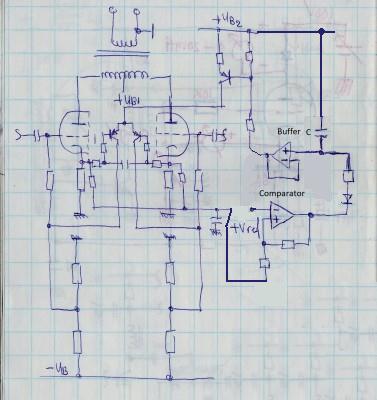 +UB2
+UB1
S
S
Buffer C
Comparator
+Vref
-UB